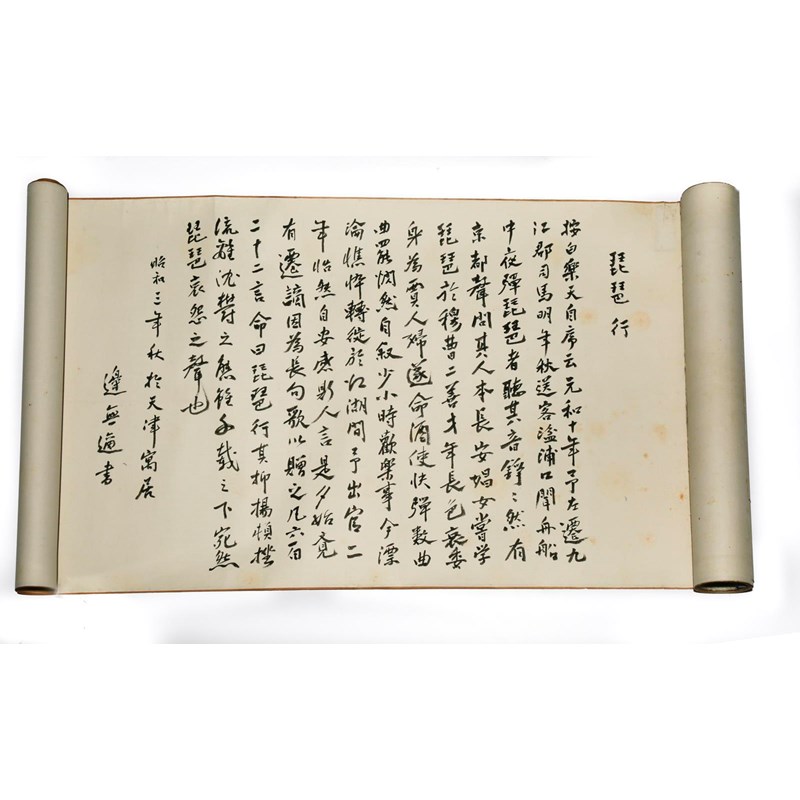 琵琶行
按白樂天自序云元和十年予左遷九
江郡司馬明年秋送客湓浦口聞舟船
中夜彈琵琶者聽其音錚〻然有
京都聲問其人本長安娼女嘗学
琵琶於穆曹二善才年長色衰委
身為賈人婦遂命酒使快弾数曲
曲罷憫然自叙少小時歡樂事今漂
淪憔悴轉徙於江湖間予出官二
年恬然自安感斯人言是夕始覚
有遷謫因為長句歌以贈之凡六百
二十二言命曰琵琶行其抑揚頓挫
流離沈鬱之態雖千載之下宛然
琵琶哀怨之聲也
昭和三年秋於天津寓居
邊無書